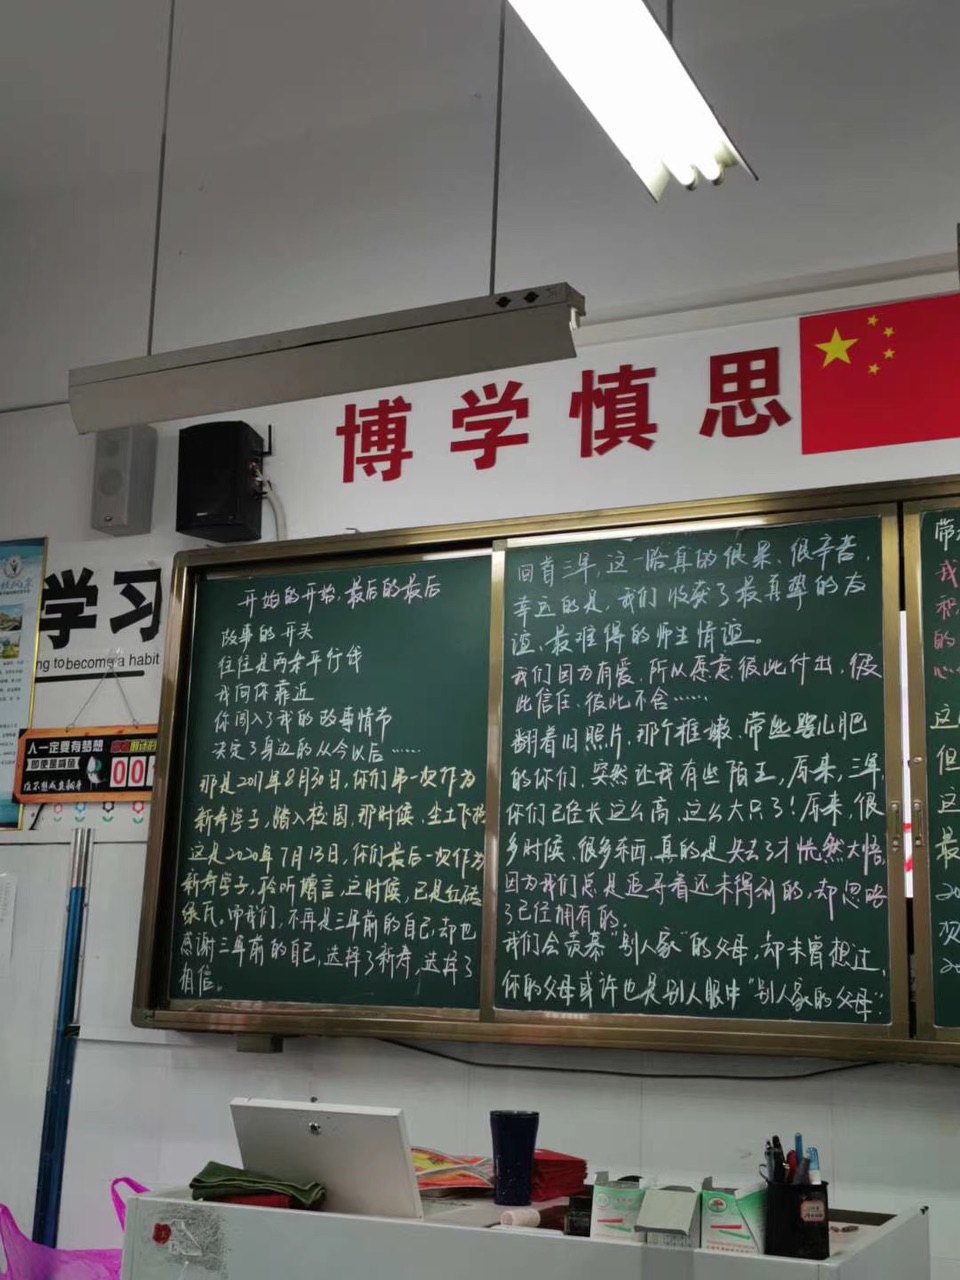 博学慎思
学习
ng to become a habit
人一定要有梦想
即使是咸鱼
00
开始的开始,最后的最后
故事的开头
往往是两条平行线
我向你靠近
你闯入了我的故事情节
决定了身边的从今以后……
那是2017年8月30日,你们第一次作为
新寿学子,踏入校园,那时候,尘土飞扬
这是2020年7月13日,你们最后一次作为
新寿学子,聆听赠言,这时候,已是红砖
绿瓦。而我们,不再是三年前的自己,却也
感谢三年前的自己,选择了新寿,选择了
相信。
回首三年,这一路真的很累、很辛苦,
幸运的是,我们收获了最真挚的友
谊、最难得的师生情谊。
我们因为有爱,所以愿意彼此付出,彼
此信任、彼此不舍……
翻着旧照片,那个稚嫩、带些婴儿肥
的你们,突然让我有些陌生,原来,三年,
你们已经长这么高,这么大只了!原来,很
多时候、很多东西,真的是失去了才恍然大悟,
因为我们总是追寻着还未得到的,却忽略
了已经拥有的。
我们会羡慕“别人家”的父母,却未曾想过,
你的父母或许也是别人眼中“别人家的父母”;
带
我
积
的
心
这
但
这
最
20
次
20